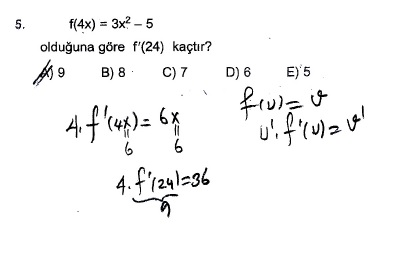 5. f(4x) = 3x² – 5
olduğuna göre f'(24) kaçtır?
A) 9 B) 8 C) 7 D) 6 E) 5
f(u) = v
u'. f'(u) = v'
4. f'(4x) = 6x
6 6
4. f'(24) = 36
9